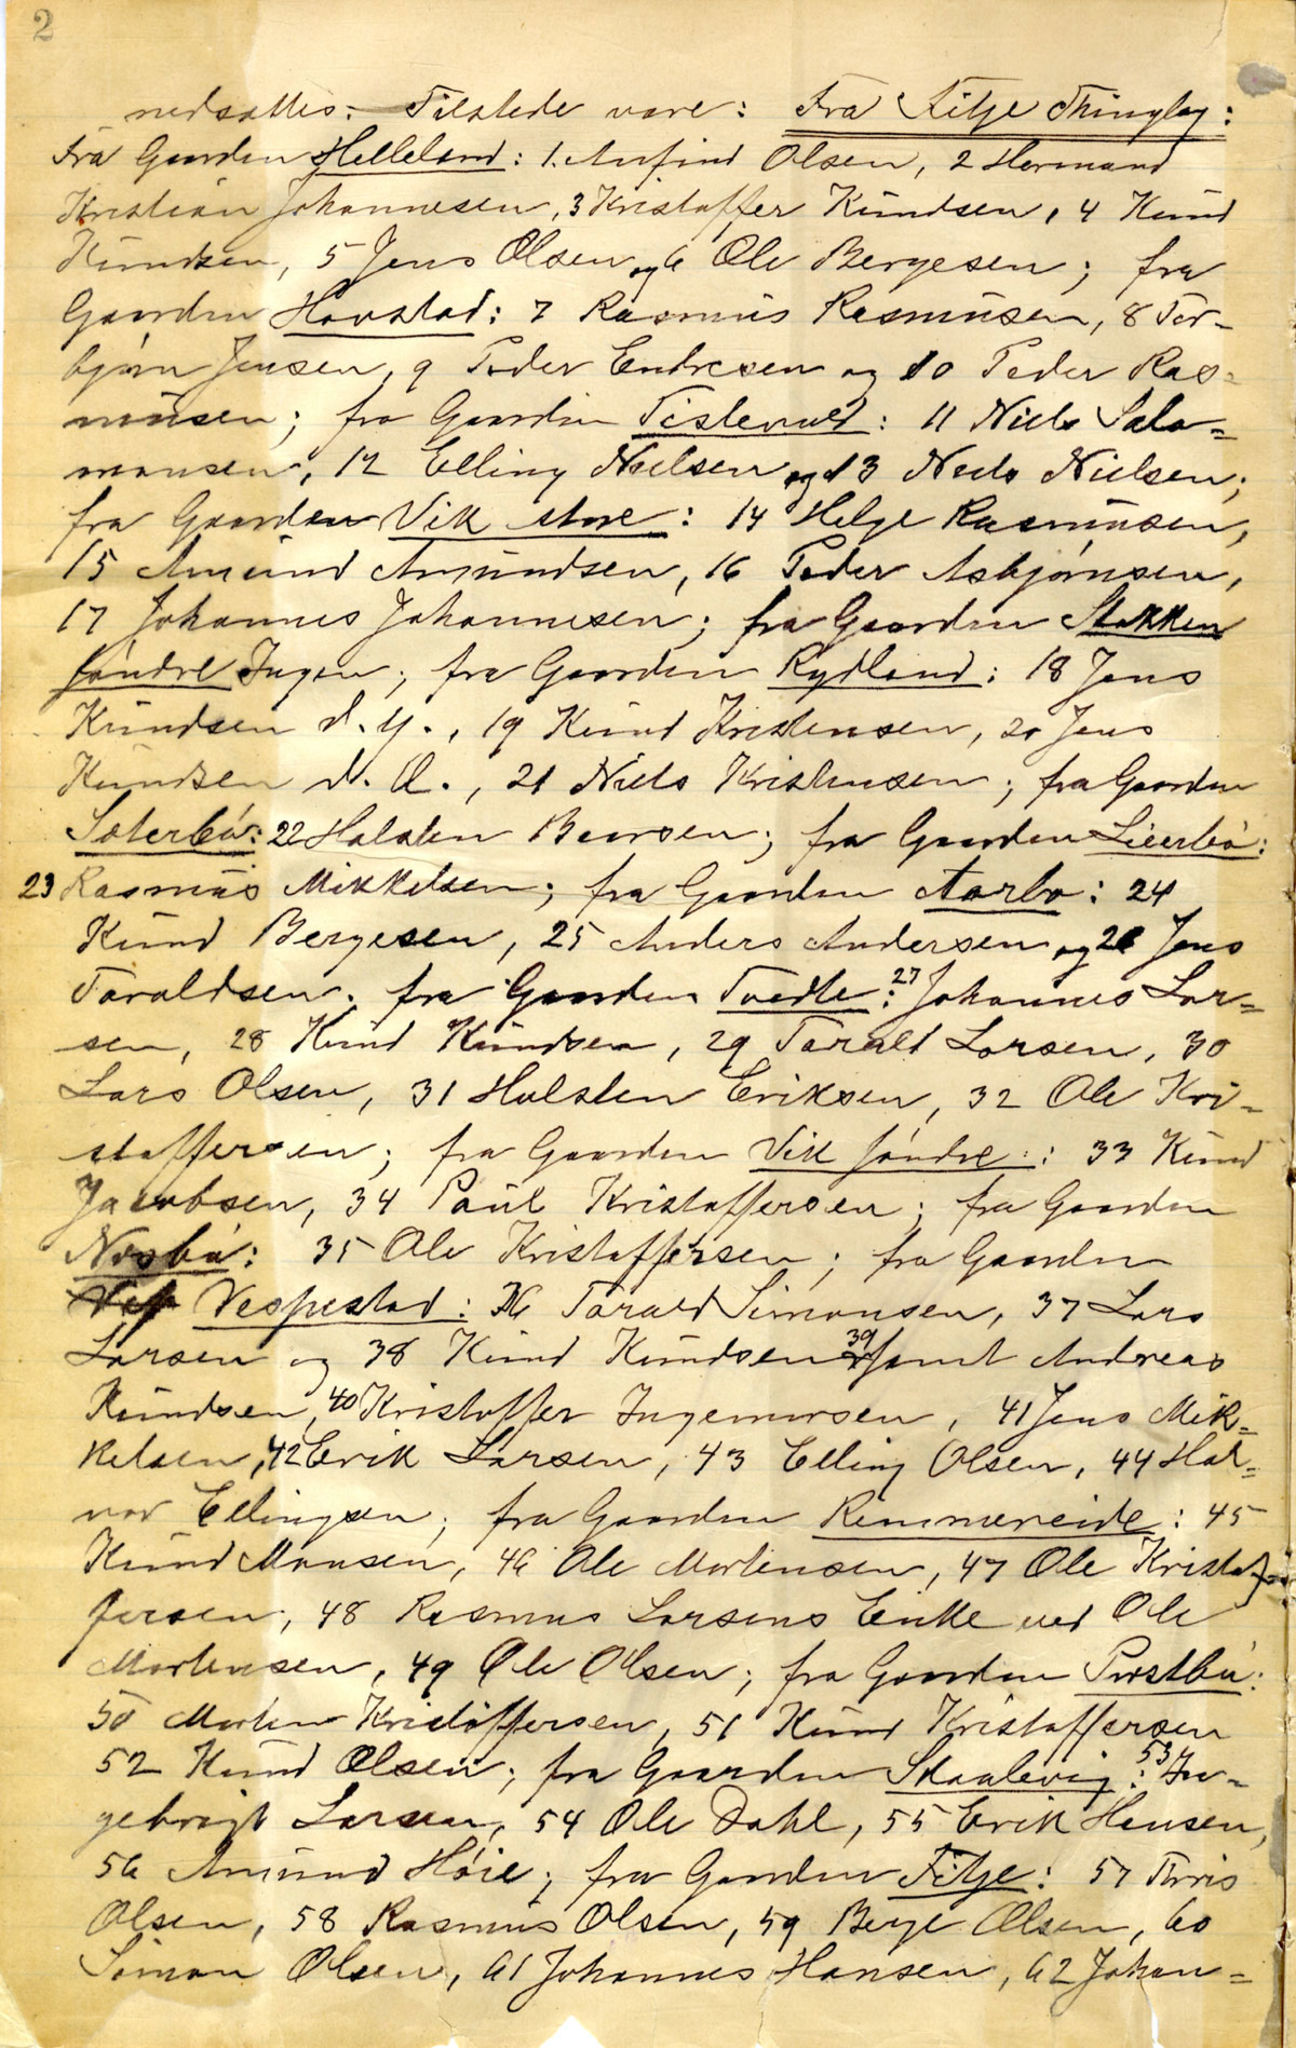 2
nedsattes. Tilstede vare: Fra Fitje Thinglag:
Fra Gaarden Helleland: 1. Anfind Olsen, 2 Hermand
Kristian Johannesen, 3 Kristoffer Knudsen, 4 Knud
Knudsen, 5 Jens Olsen og 6 Ole Bergesen; fra
Gaarden Hovstad: 7 Rasmus Rasmusen, 8 Tor-
bjørn Jensen, 9 Peder Endresen og 10 Peder Ras-
musen; fra Gaarden Tislevold: 11 Niels Salo=
monsen, 12 Elling Nielsen og 13 Niels Nielsen;
fra Gaarden Vik store: 14 Helge Rasmusen,
15 Amund Amundsen, 16 Peder Asbjørnsen,
17 Johannes Johannesen; fra Gaarden Stokken
søndre Ingen; fra Gaarden Rydland: 18 Jens
Knudsen d. y., 19 Knud Kristensen, 20 Jens
Knudsen d. Æ., 21 Niels Kristensen; fra Gaarden
Sæterbø: 22 Halsten Baarsen; fra Gaarden Lierbø:
23 Rasmus Mikkelsen; fra Gaarden Aarbø: 24
Knud Bergesen, 25 Anders Andersen og 26 Jens
Taraldsen; fra Gaarden Tvedte: 27 Johannes Lar=
sen, 28 Knud Knudsen, 29 Tarald Larsen, 30
Lars Olsen, 31 Halsten Eriksen, 32 Ole Kri-
stoffersen; fra Gaarden Vik søndre: 33 Knud
Jacobsen, 34 Paul Kristoffersen; fra Gaarden
Nesbø: 35 Ole Kristoffersen; fra Gaarden
Vespestad: 36 Tarald Simonsen, 37 Lars
Larsen og 38 Knud Knudsen 39 samt Andreas
Knudsen, 40 Kristoffer Ingemorsen, 41 Jens Mik=
kelsen, 42 Erik Larsen, 43 Elling Olsen, 44 Hal=
vor Ellingsen; fra Gaarden Remmereide: 45
Knud Monsen, 46 Ole Mortensen, 47 Ole Kristof-
fersen, 48 Rasmus Larsens Enke ved Ole
Mortensen, 49 Ole Olsen; fra Gaarden Prestbø:
50 Morten Kristoffersen, 51 Knud Kristoffersen
52 Knud Olsen; fra Gaarden Skaalevig: 53 In-
gebrigt Larsen, 54 Ole Dahl, 55 Erik Hansen,
56 Amund Høie; fra Gaarden Fitje: 57 Thris
Olsen, 58 Rasmus Olsen, 59 Berge Olsen, 60
Simon Olsen, 61 Johannes Hansen, 62 Johan=